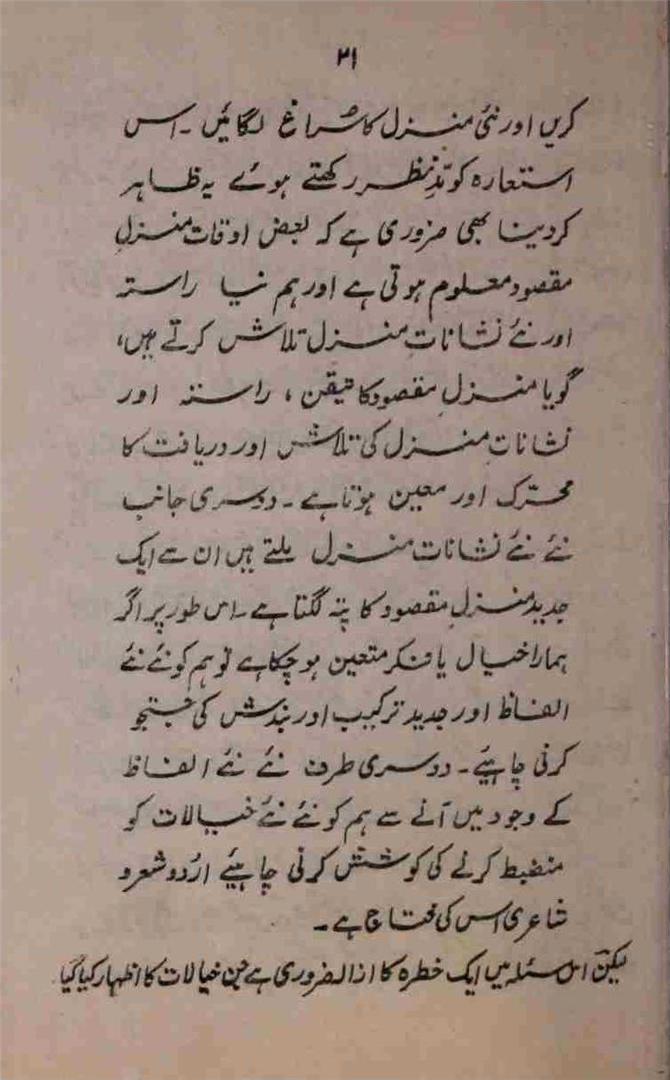 ۲۱
کریں اور نئی منزل کا سُراغ لگائیں۔ اس
استعارہ کو مدِّنظر رکھتے ہوئے یہ ظاہر
کر دینا بھی ضروری ہے کہ بعض اوقات منزلِ
مقصود معلوم ہوتی ہے اور ہم نیا راستہ
اور نئے نشاناتِ منزل تلاش کرتے ہیں،
گویا منزلِ مقصود کا تیقن، راستہ اور
نشاناتِ منزل کی تلاش اور دریافت کا
محرّک اور معین ہوتا ہے۔ دوسری جانب
نئے نئے نشانات منزل ملتے ہیں ان سے ایک
جدید منزلِ مقصود کا پتہ لگتا ہے۔ اس طور پر اگر
ہمارا خیال یا فکر متعین ہو چکا ہے تو ہم کو نئے نئے
الفاظ اور جدید ترکیب اور بندش کی جستجو
کرنی چاہیئے۔ دوسری طرف نئے نئے الفاظ
کے وجود میں آنے سے ہم کو نئے نئے خیالات کو
منضبط کرنے کی کوشش کرنی چاہیئے اردو شعر و
شاعری اس کی محتاج ہے۔
لیکن اس سئلہ میں ایک خطرہ کا ازالہ ضروری ہے جن خیالات کا اظہار کیا گیا